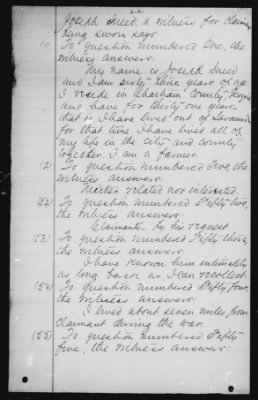 Joseph Sneed, a witness for claimant
being sworn says:
(1) To question numbered One, the
witness answers:
My name is Joseph Sneed
and I am sixty three years of age
I reside in Chatham County Georgia
and have for thirty one years
that is I have lived out of Savannah
for that time I have lived all of
my life in the city and county
together. I am a farmer.
(2) To question numbered Two, the
witness answers:
Neither related nor interested.
(52) To question numbered Fifty two,
the witness answers:
Claimant - by his request.
(53) To question numbered Fifty three,
the witness answers:
I have known him intimately
as long back as I can recollect.
(54) To question numbered Fifty four,
the witness answers:
I lived about seven miles from
claimant during the war.
(55) To question numbered Fifty
five, the witness answers: